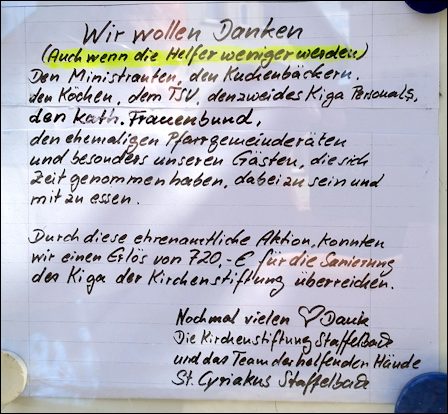 Wir wollen Danken
(Auch wenn die Helfer weniger werden)
Den Ministranten, den Kuchenbäckern,
den Köchen, dem TSV, den zweides Kiga Personals,
den kath. Frauenbund,
den ehemaligen Pfarrgemeinderäten
und besonders unseren Gästen, die sich
Zeit genommen haben, dabei zu sein und
mit zu essen.
Durch diese ehrenamtliche Aktion, konnten
wir einen Erlös von 720,-€, für die Sanierung
des Kiga der Kirchenstiftung überreichen.
Nochmal vielen ♡ Dank
Die Kirchenstiftung Staffelbach
und das Team der helfenden Hände
St. Cyriakus Staffelbach